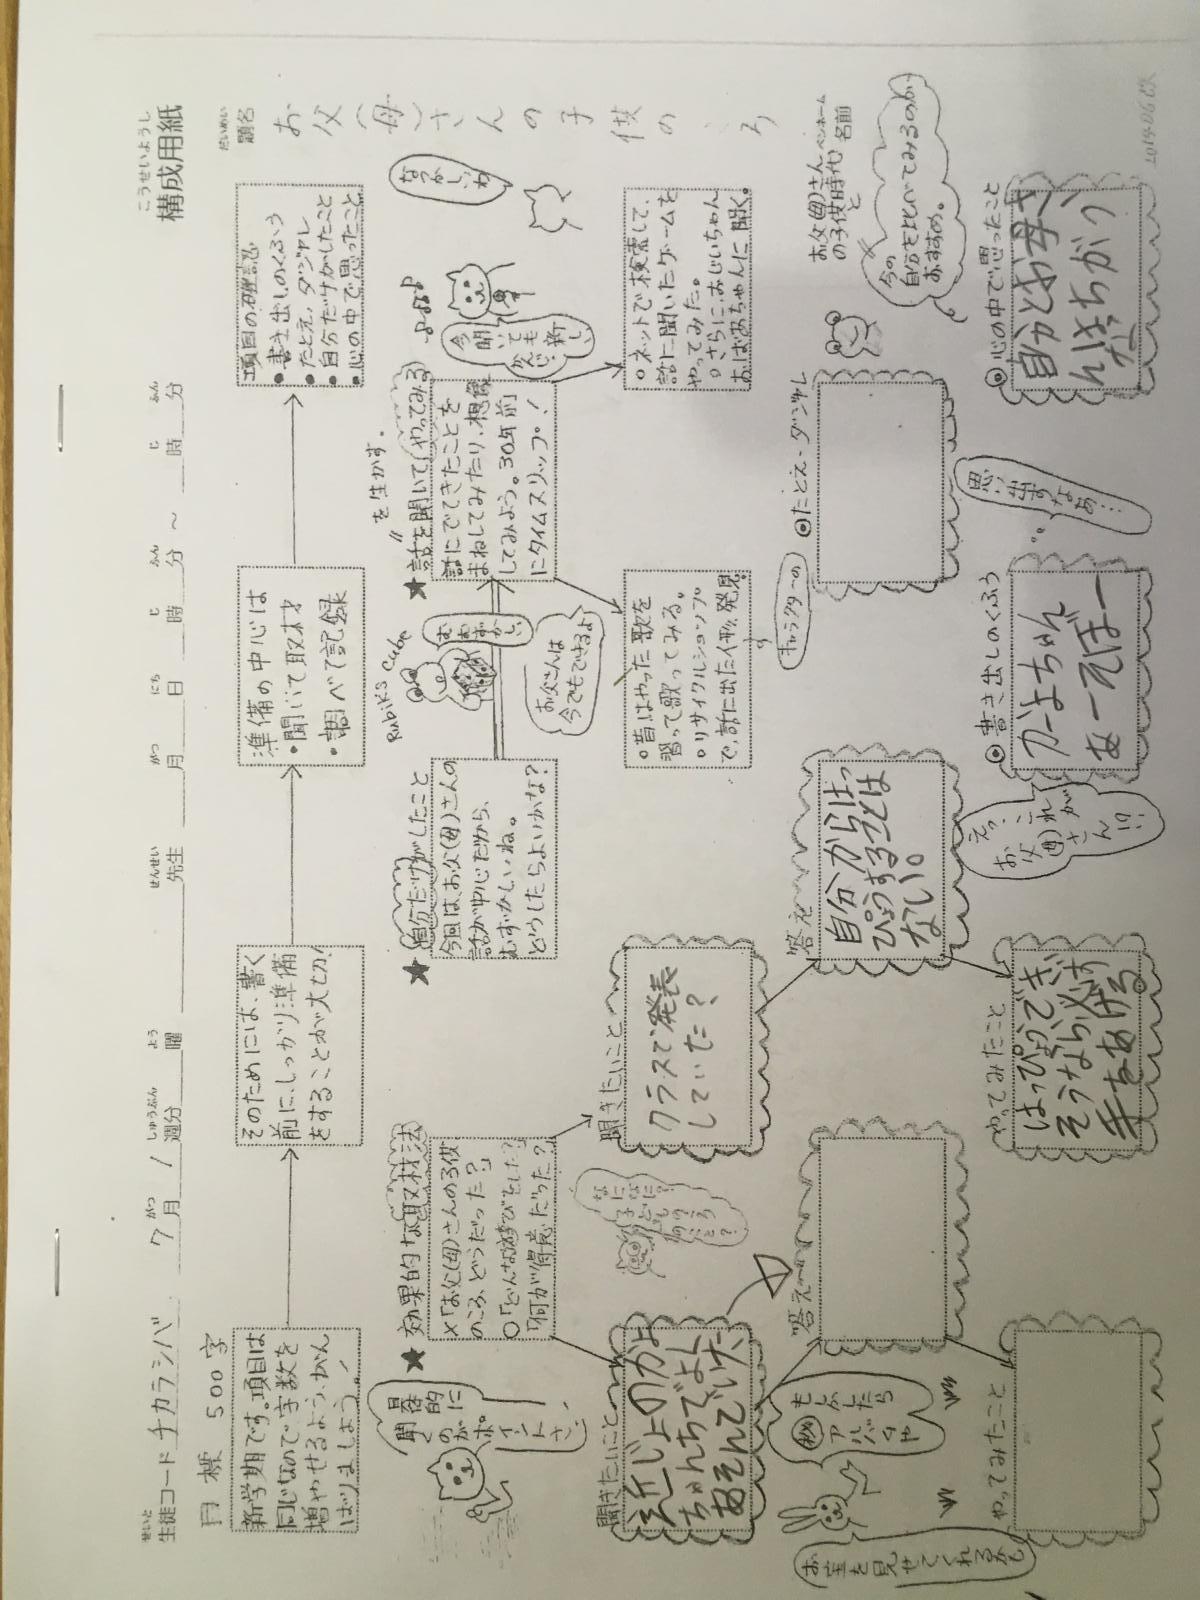 こうせいようし
構成用紙
せいと
生徒コード チカラシバ 7月 / 週分 曜 先生 月 日 時 分 ～ 時 分
がつ しゅうぶん よう せんせい がつ にち じ ふん じ ふん
目標 500字
だいめい
題名
お父(母)さんの子供のころ
新学期です。項目は
同じなので字数を
増やせるよう、がん
ばりましょう!
そのためには、書く
前に、しっかり準備
をすることが大切。
準備の中心は
・聞いて取材
・調べて記録
項目の確認
●書き出しのくふう
●たとえ、ダジャレ
●自分だけがしたこと
●心の中で思ったこと
具体的に
聞くと
のがポ
イント
さ!
★効果的な取材法
×「お父(母)さんの子供
のころ、どうだった?」
○「どんな遊びをした?」
「何が得意だった?」
★自分だけがしたこと
今回は、お父(母)さんの
話が中心だから、
むずかしいね。
どうしたらよいかな?
Rubik's Cube
お父さんは
今でもできるよ
を生かす。
★話を聞いて(やってみる)
話にでてきたことを
まねしてみたり、想像
してみよう。30年前
にタイムスリップ!
今聞
いても
かんじ
新しい
なつかしいわ
聞きたいこと
近じょのかよ
ちゃんちでよく
あそんでいた
聞きたいこと
クラスで発表
していた?
○昔はやった歌を
習って歌ってみる。
○リサイクルショップ
で、話に出た人形発見。
キャラクターの
○ネットで検索して、
話に聞いたゲームを
やってみた。
○さらに、おじいちゃん
おばあちゃんに聞く。
もしかしたら
秘アルバムや
お宝を見せてくれるかも
答え
答え
自分からはっ
ぴょうすることは
ない。
◉たとえ・ダジャレ
お父(母)さん
の子供時代と
ペンネーム
名前
今の
自分を比べてみるのが
おすすめ。
やってみたこと
やってみたこと
はっぴょうでき
そうなら必ず
手をあげる。
えっ、これが
お父(母)さん!?
◉書き出しのくふう
かーよちゃん
あーそぼー
思い出すなあ…
◉心の中で思ったこと
自分とお母さ
んはちがう
な